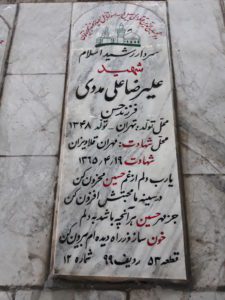 سردار رشید اسلام
شهید
علیرضا علی مددی
فرزند حسن
محل تولد: تهران - تولد ۱۳۴۸
محل شهادت: مهران قلاویزان
شهادت ۱۳۶۵/۴/۱۹
یارب دلم از غم حسین محزون کن
در سینه ما محبتش افزون کن
جز مهر حسین هرآنچه باشد به دلم
خون ساز و ز راه دیده ام بیرون کن
قطعه ۵۳ ردیف ۹۹ شماره ۱۲